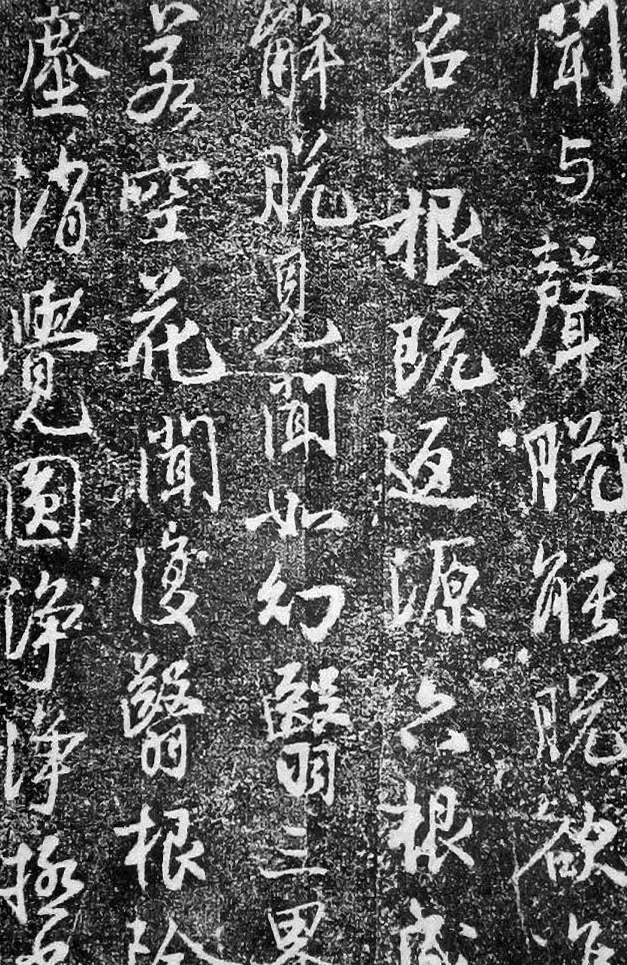 聞与聲脱能脱欲
名一根既返源六根成
解脱見聞如幻翳三界
若空花聞復翳根除
塵消覺圓淨淨極